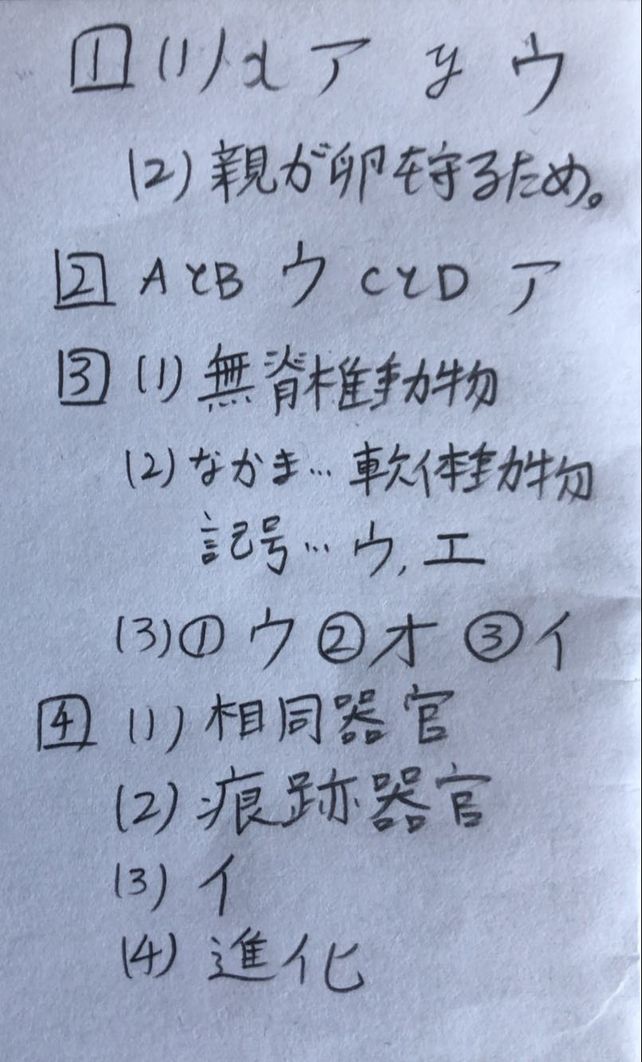 1 (1) x ア y ウ
(2) 親が卵を守るため。
2 AとB ウ CとD ア
3 (1) 無脊椎動物
(2) なかま… 軟体動物
記号… ウ, エ
(3) ① ウ ② オ ③ イ
4 (1) 相同器官
(2) 痕跡器官
(3) イ
(4) 進化